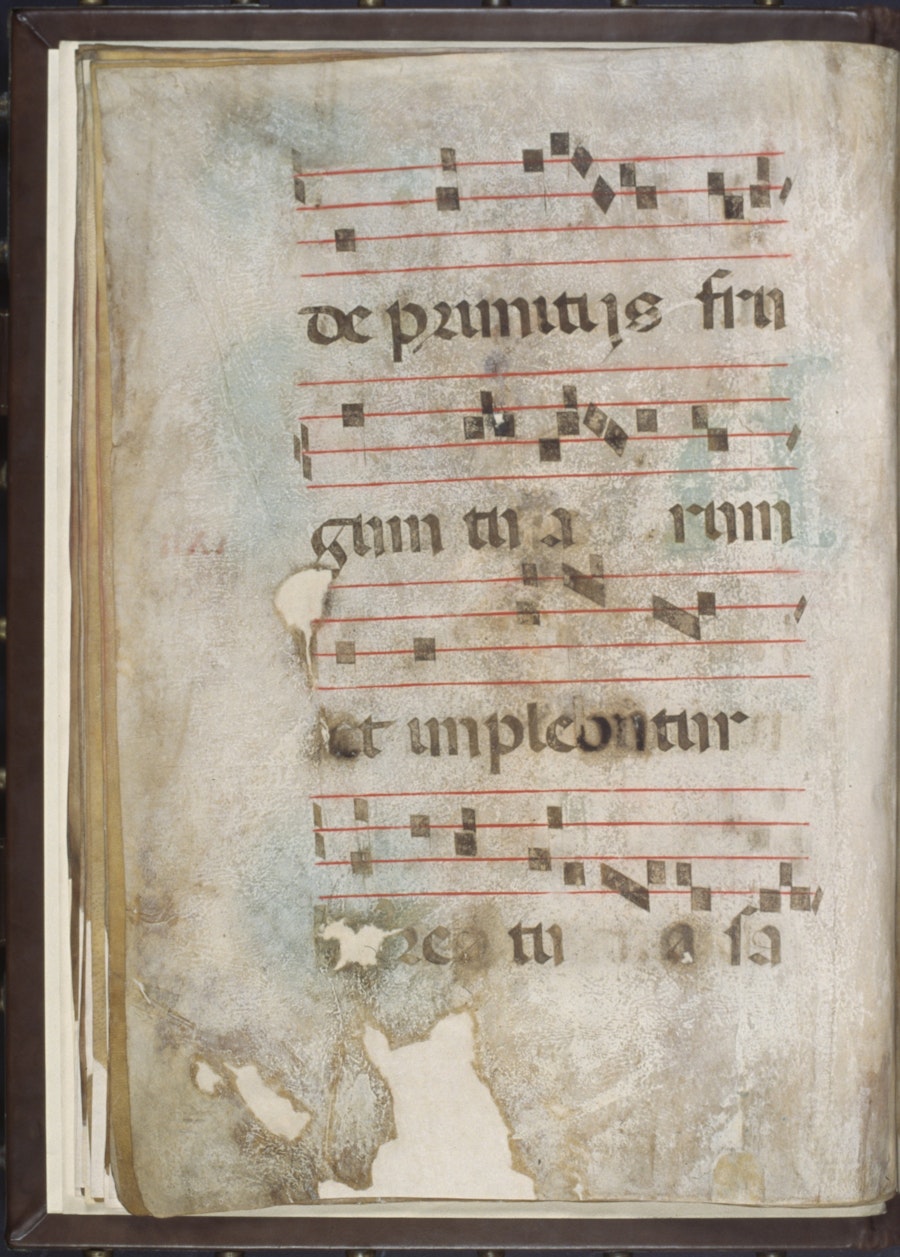 de primitijs fru
gum tu a rum
et impleontur
rea tu a sa